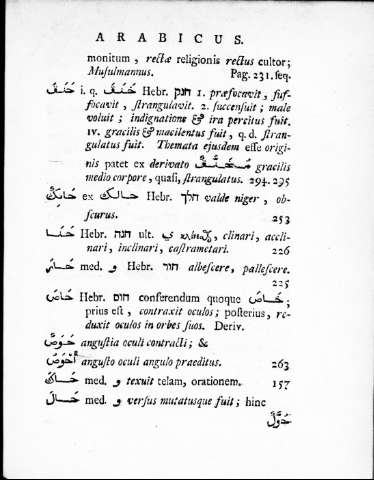 ARABICUS.
monitum, rectæ religionis rectus cultor;
Musulmannus. Pag. 231. seq.
i. q. Hebr. חנק 1. præfocavit, suf-
focavit, strangulavit. 2. succensuit; male
voluit; indignatione & ira percitus fuit.
IV. gracilis & macilentus fuit, q. d. stran-
gulatus fuit. Themata ejusdem esse origi-
nis patet ex derivato gracilis
medio corpore, quasi, strangulatus. 294. 295
ex حالك Hebr. חלך valde niger, ob-
scurus. 253
Hebr. חנה ult. ي clinari, accli-
nari, inclinari, castrametari. 226
med. و Hebr. חור albescere, pallescere.
225
Hebr. חום conferendum quoque ;
prius est, contraxit oculos; posterius, re-
duxit oculos in orbes suos. Deriv.
حَوَصٌ angustia oculi contracti; &
أَحْوَصُ angusto oculi angulo præditus. 263
حَاكَ med. و texuit telam, orationem. 157
حَالَ med. و versus mutatusque fuit; hinc
حُوَّلٌ